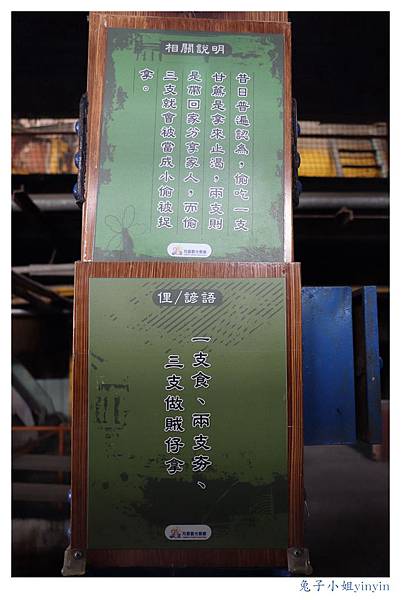 相關說明
昔日普遍認為，偷吃一支
甘蔗是拿來止渴，兩支則
是帶回家分享家人，而偷
三支就會被當成小偷被捉
拿。
月眉觀光糖廠
俚/諺語
一支食、兩支夯、
三支做賊仔拿
月眉觀光糖廠
兔子小姐yinyin